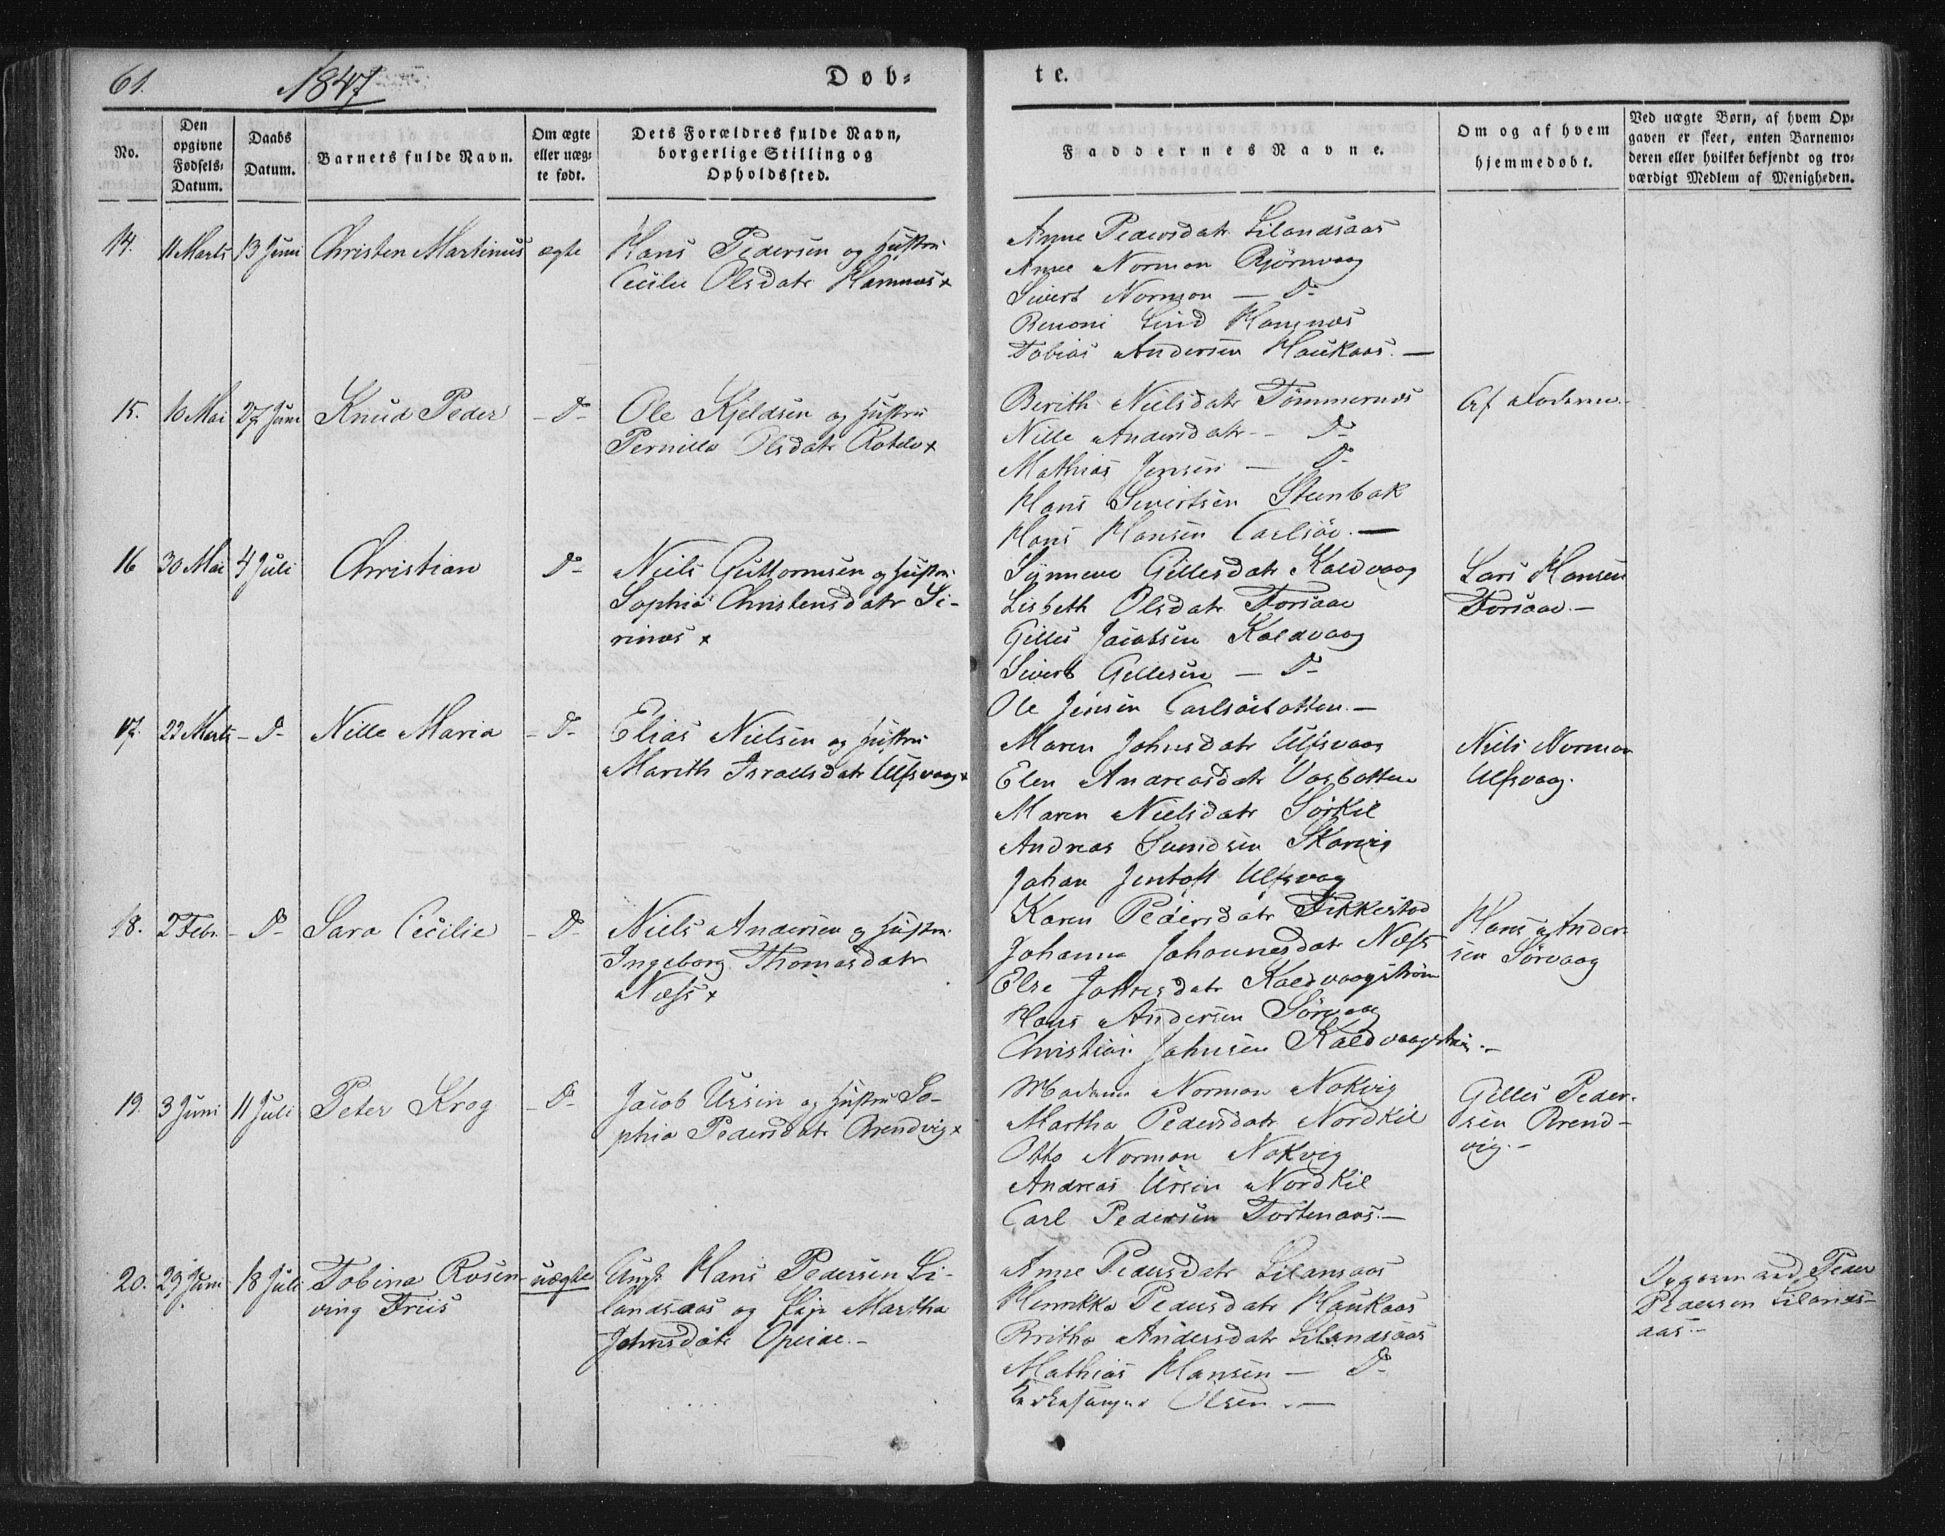 61.
1847
Døb-
te.
No.
Den
opgivne
Fødsels-
Datum.
Daabs
Datum.
Barnets fulde Navn.
Om ægte
eller uæg-
te født.
Dets Forældres fulde Navn,
borgerlige Stilling og
Opholdssted.
Faddernes Navne.
Om og af hvem
hjemmedøbt.
Ved uægte Børn, af hvem Op-
gaven er skeet, enten Barnemo-
deren eller hvilket bekjendt og tro-
værdigt Medlem af Menigheden.
14. 11 Marts 13 Juni Christen Martinus ægte
Hans Pedersen og Hustru
Cecilie Olsdatr Hamnæs x
Anne Pedersdatr Lilandsaas
Anne Norman Bjørnvaag
Sivert Norman — Do
Benoni Lind Hamnæs
Tobias Andersen Haukaas. —
15. 16 Mai 27 Juni Knud Peder - Do -
Ole Kjeldsen og Hustru
Pernilla Olsdatr x
Berith Nielsdatr Tømmernæs
Nille Andersdatr - Do
Mathias Jensen — Do
Hans Sivertsen Steenbak
Hans Hansen Carlsøe. —
Af
16 30 Mai 4 Juli Christian Do -
Niels Guttormsen og Hustru
Sophia Christensdatr Si-
rinæs x
Synneve Gillesdatr Kaldvaag
Lisbeth Olsdatr Forsaae
Gilles Jacobsen Kaldvaag
Sivert Gillesen — Do
Ole Jensen Carlsøebotten. —
Lars Hansen
Forsaae. —
17. 22 Marts - Do - Nille Maria - Do -
Elias Nielsen og Hustru
Marith Israelsdatr Ulfsvaag x
Maren Johnsdatr Ulfsvaag
Elen Andreasdatr Vasbotten
Maren Nielsdatr Sørkil
Andreas Svendsen Skarvig
Johan Jentoft Ulfsvaag
Niels Norman
Ulfsvaag.
18. 2 Febr. - Do - Sara Cecilie - Do -
Niels Andersen og Hustru
Ingeborg Thomasdatr
Næss x
Karen Pedersdatr Fikkestad
Johanna Johannesdatr Næss
Else Johnsdatr Kaldvaagstrøm
Hans Andersen Sørvaag
Christian Johnsen Kaldvaagstrøm. —
Hans Ander-
sen Sørvaag
19. 3 Juni 11 Juli Peter Krog - Do -
Jacob Ursin og Hustru So-
phia Pedersdatr Brendvig x
Madam Norman Nakvig
Martha Pedersdatr Nordkil
Otto Norman Nakvig
Andreas Ursin Nordkil
Carl Pedersen Tortenaas. —
Gilles Peder-
sen Brend-
vig. —
20. 29 Juni 18 Juli Tobina Rosen- uægte
ving Friis
Ungk. Hans Pedersen Li-
landsaas og Pige Martha
Johnsdatr Opeide. —
Anne Pedersdatr Lilansaas
Henrikka Pedersdatr Haukaas
Britha Andersdatr Lilandsaas
Mathias Hansen — Do
Kirkesanger Olsen. —
Peder
Pedersen Lilands-
aas. —